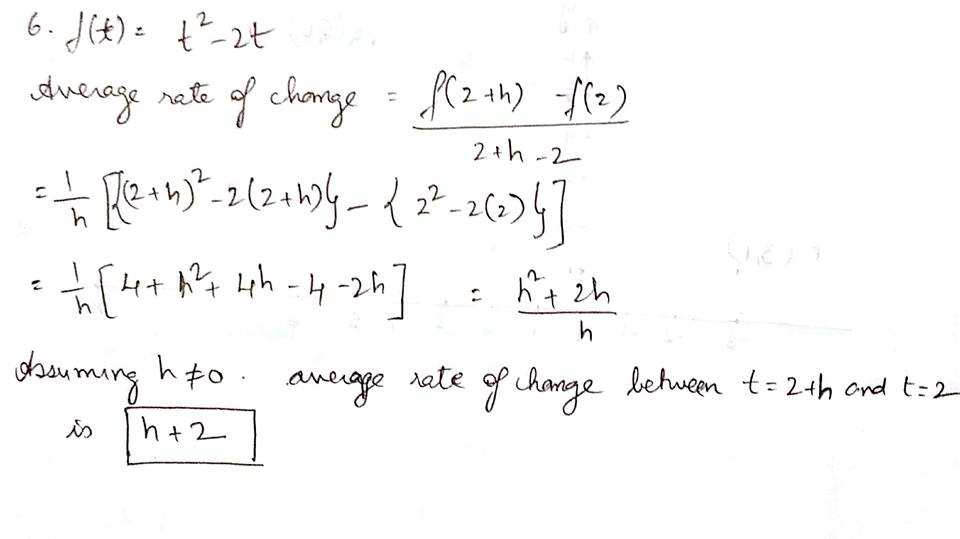 6. f(t) = t² - 2t
Average rate of change = f(2+h) - f(2) / 2+h-2
= 1/h [{(2+h)² - 2(2+h)} - {2² - 2(2)}]
= 1/h [4 + h² + 4h - 4 - 2h] = h² + 2h / h
Assuming h ≠ 0. average rate of change between t = 2+h and t = 2
is h + 2